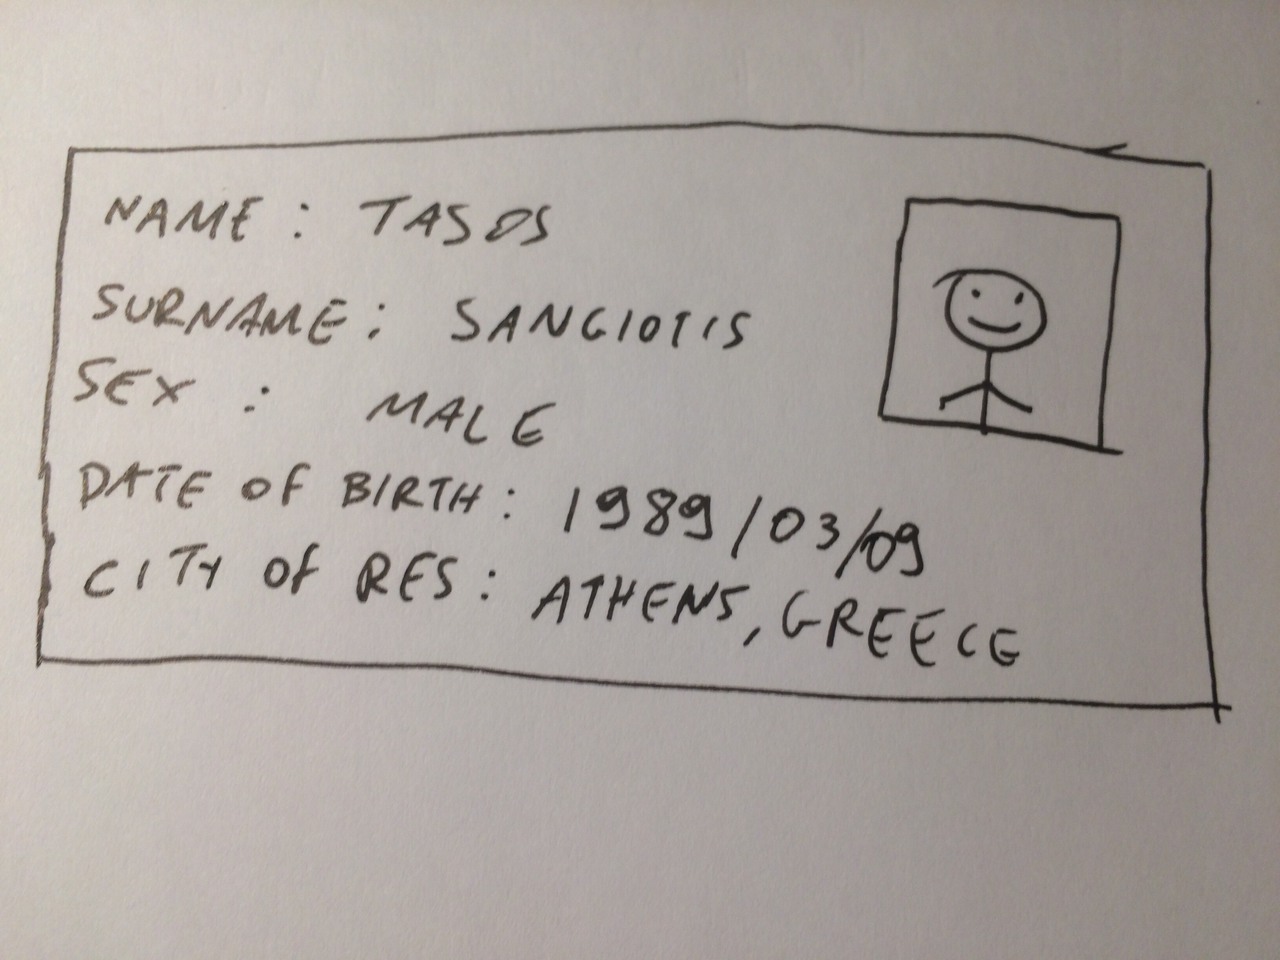 NAME : TASOS
SURNAME : SANGIOTIS
SEX : MALE
DATE OF BIRTH : 1989/03/09
CITY OF RES : ATHENS, GREECE